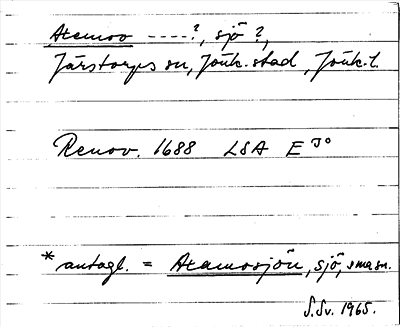 Axamoo ----?, sjö ?,
Järstorps sn, Jönk. stad, Jönk. l.
Renov. 1688 LSA E J°
* antagl. = Axamosjön, sjö, sma sn.
S.Sv. 1965.